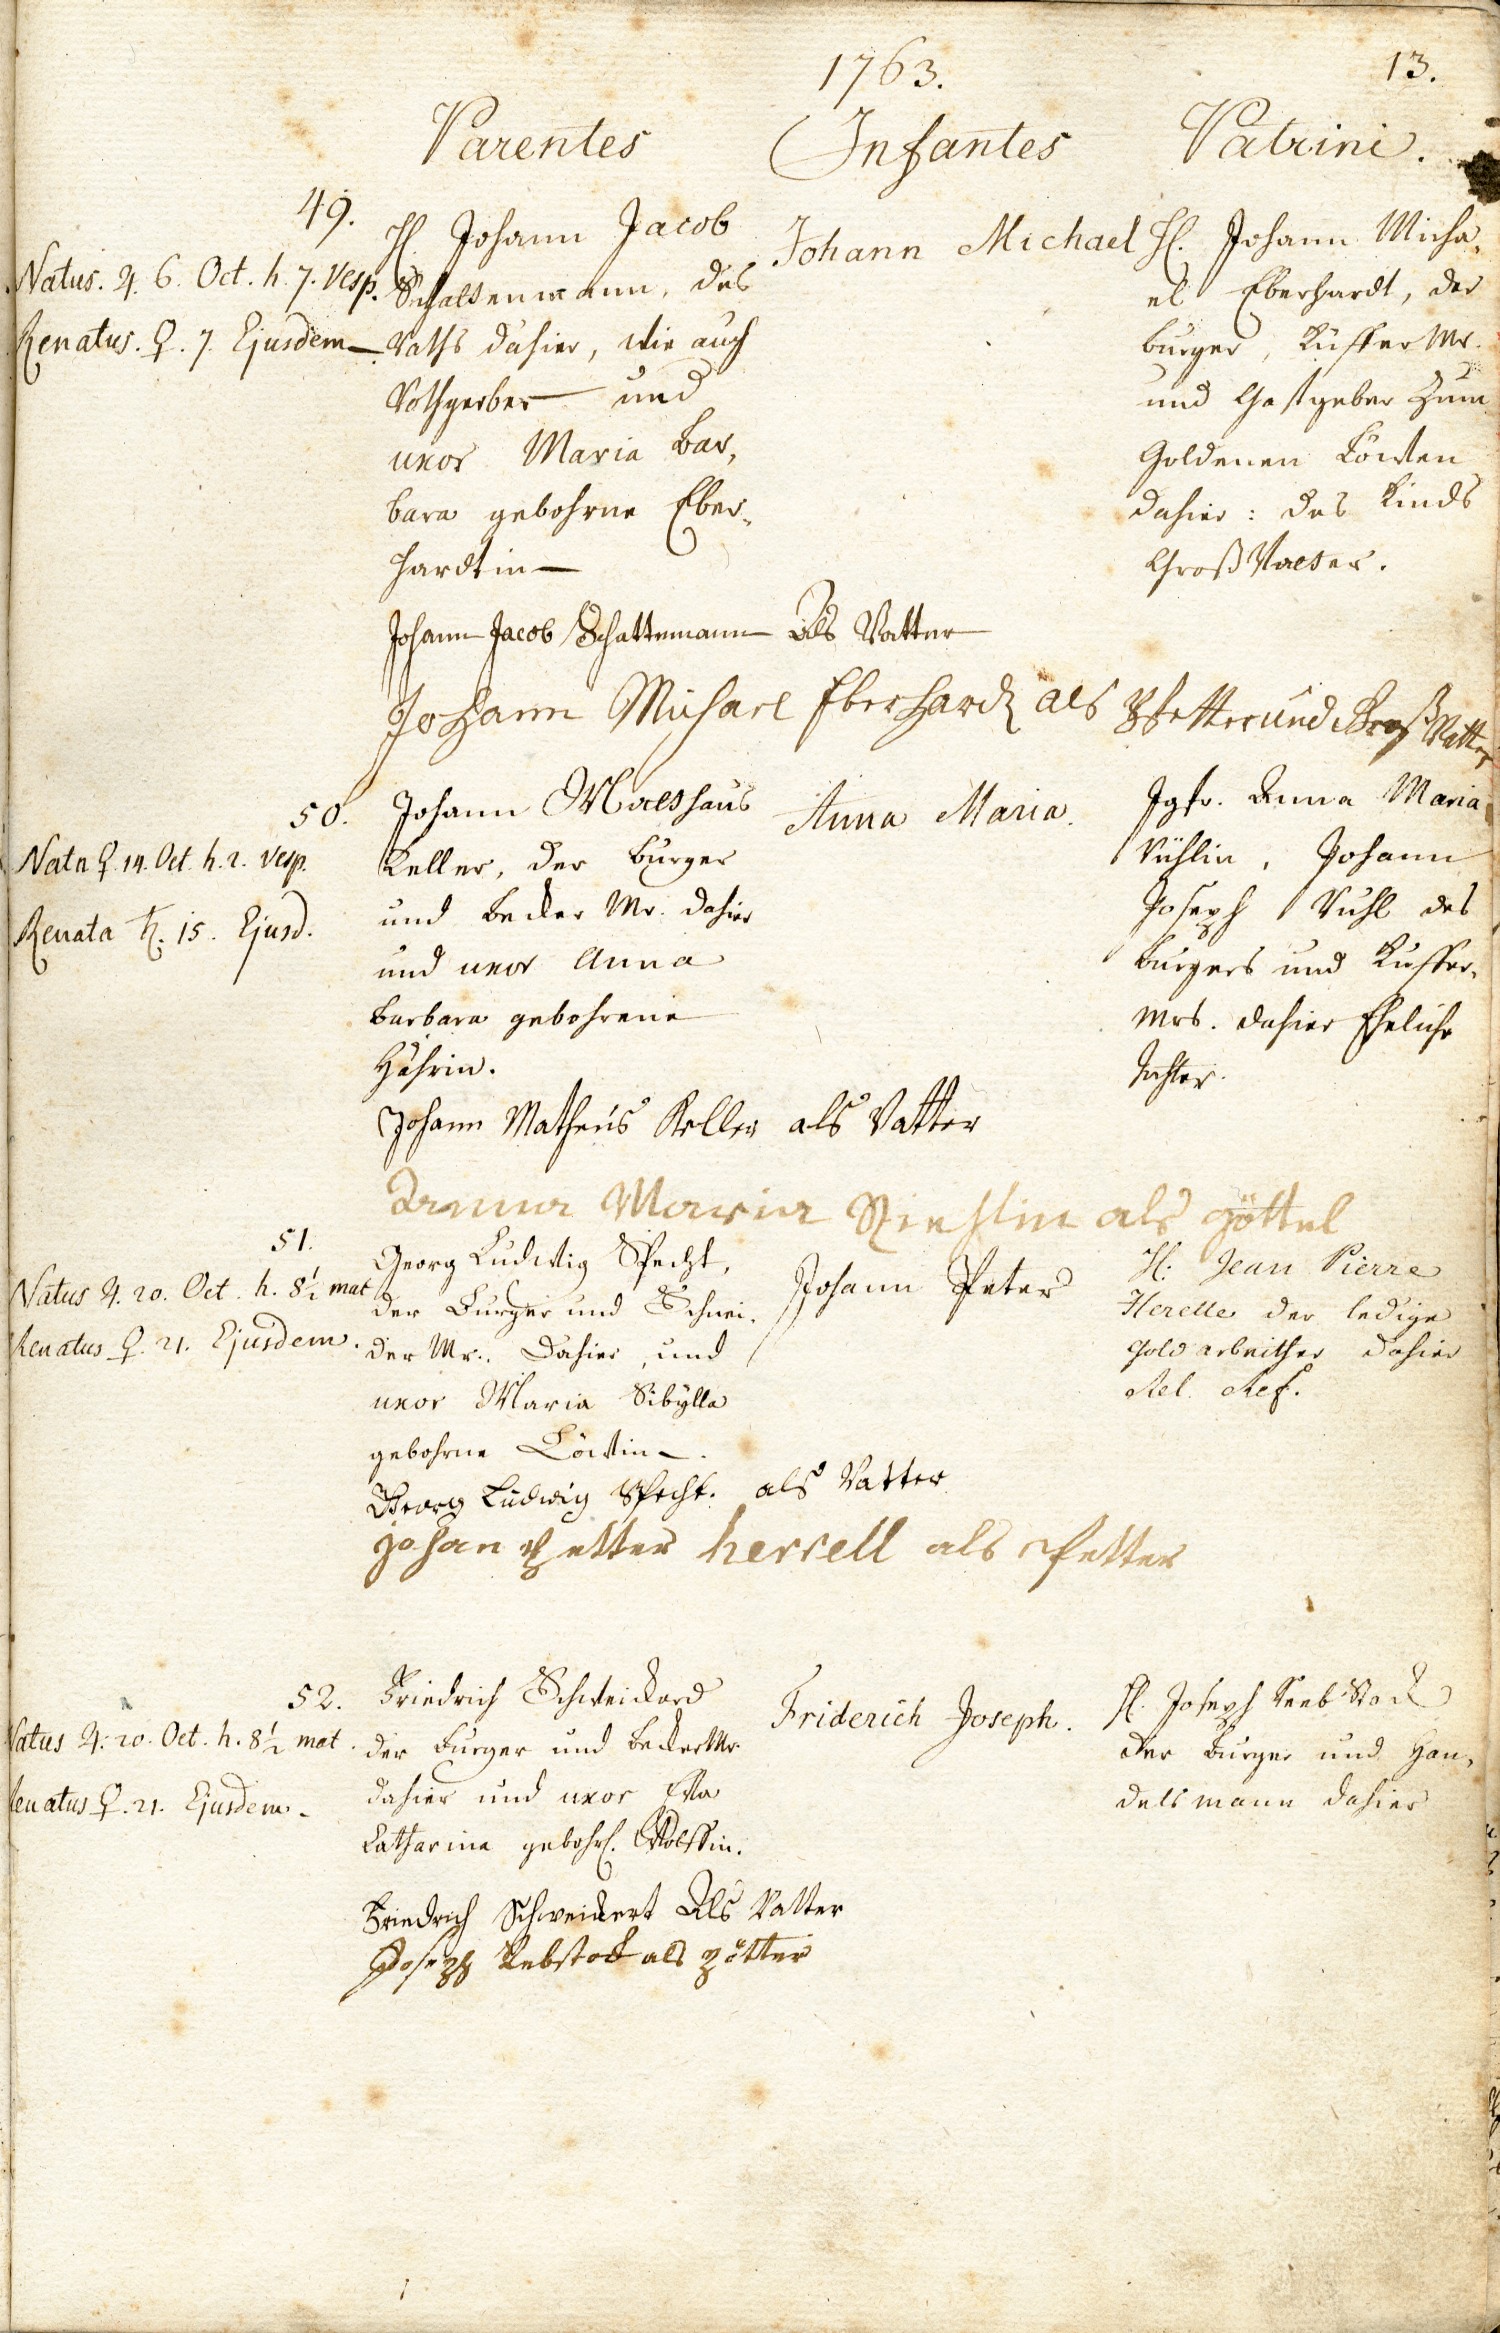 1763.
13.
Parentes
Infantes
Patrini.
49.
Natus. ♃. 6. Oct. h. 7. Vesp.
Renatus. ♀. 7. Ejusdem
H. Johann Jacob
Schattenmann, des
Raths dahier, wie auch
Rothgerber und
uxor Maria Bar,
bara gebohrne Eber,,
hardtin
Johann Michael
H. Johann Micha,
el Eberhardt, der
burger, Küffer Mr.
und Gastgeber zum
Goldenen Löwen
dahier: des Kinds
Groß Vatter.
Johann Jacob Schattenmann als Vatter
Johann Michael Eberhard als Pfetter und Groß Vatter
50.
Nata ♀. 14. Oct. h. 2. Vesp.
Renata ♄. 15. Ejusd.
Johann Matthäus
Keller, der burger
und Becker Mr. dahier
und uxor Anna
Barbara gebohrene
Anna Maria.
Jgfr. Anna Maria
Rühlin, Johann
Joseph Ruhl des
burgers und Kuffer,
Mrs. dahier Eheliche
Tochter.
Johann Matheus Keller als Vatter
Anna Maria als göttel
51.
Natus ♃. 20. Oct. h. 8½ mat
Renatus ♀. 21. Ejusdem.
Georg Ludwig Specht,
der Burger und Schnei,
der Mr. dahier, und
uxor Maria Sibylla
gebohrne Löwin.
Johann Peter
H: Jean Pierre
Herelle der ledige
Gold arbeither dahier
Rel. Ref.
Georg Ludwig Specht. als Vatter
johan petter herrell als Petter
52.
Natus ♃. 20. Oct. h. 8½ mat.
Renatus ♀. 21. Ejusdem.
Friedrich Schweickard
der Burger und Becker Mr
dahier und uxor Eva
Catharina gebohr. Wolffin.
Friderich Joseph.
H. Joseph Reeb Stock
der burger und Han,
delsmann dahier
Friedrich Schweickert Als Vatter
Joseph Rebstock als pötter